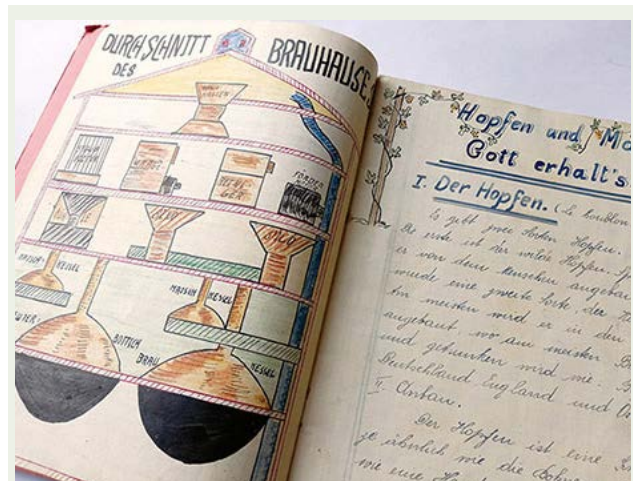 DURCHSCHNITT
DES
BRAUHAUSES
FÖRDER
SILO
SILO
MAISCH KESSEL
MAISCH KESSEL
BOTTICH
BRAU KESSEL
Hopfen und Ma
Gott erhalt's
I. Der Hopfen. (Le houblon
Es gibt zwei Sorten Hopfen.
Die erste ist der wilde Hopfen.
er von dem Menschen angebau
wurde eine zweite Sorte, der
Am meisten wird er in den
angebaut wo am meisten B
und getrunken wird wie
Deutschland England und Os
II. Anbau.
Der Hopfen ist eine
je üblich wie die Bohne
wie eine